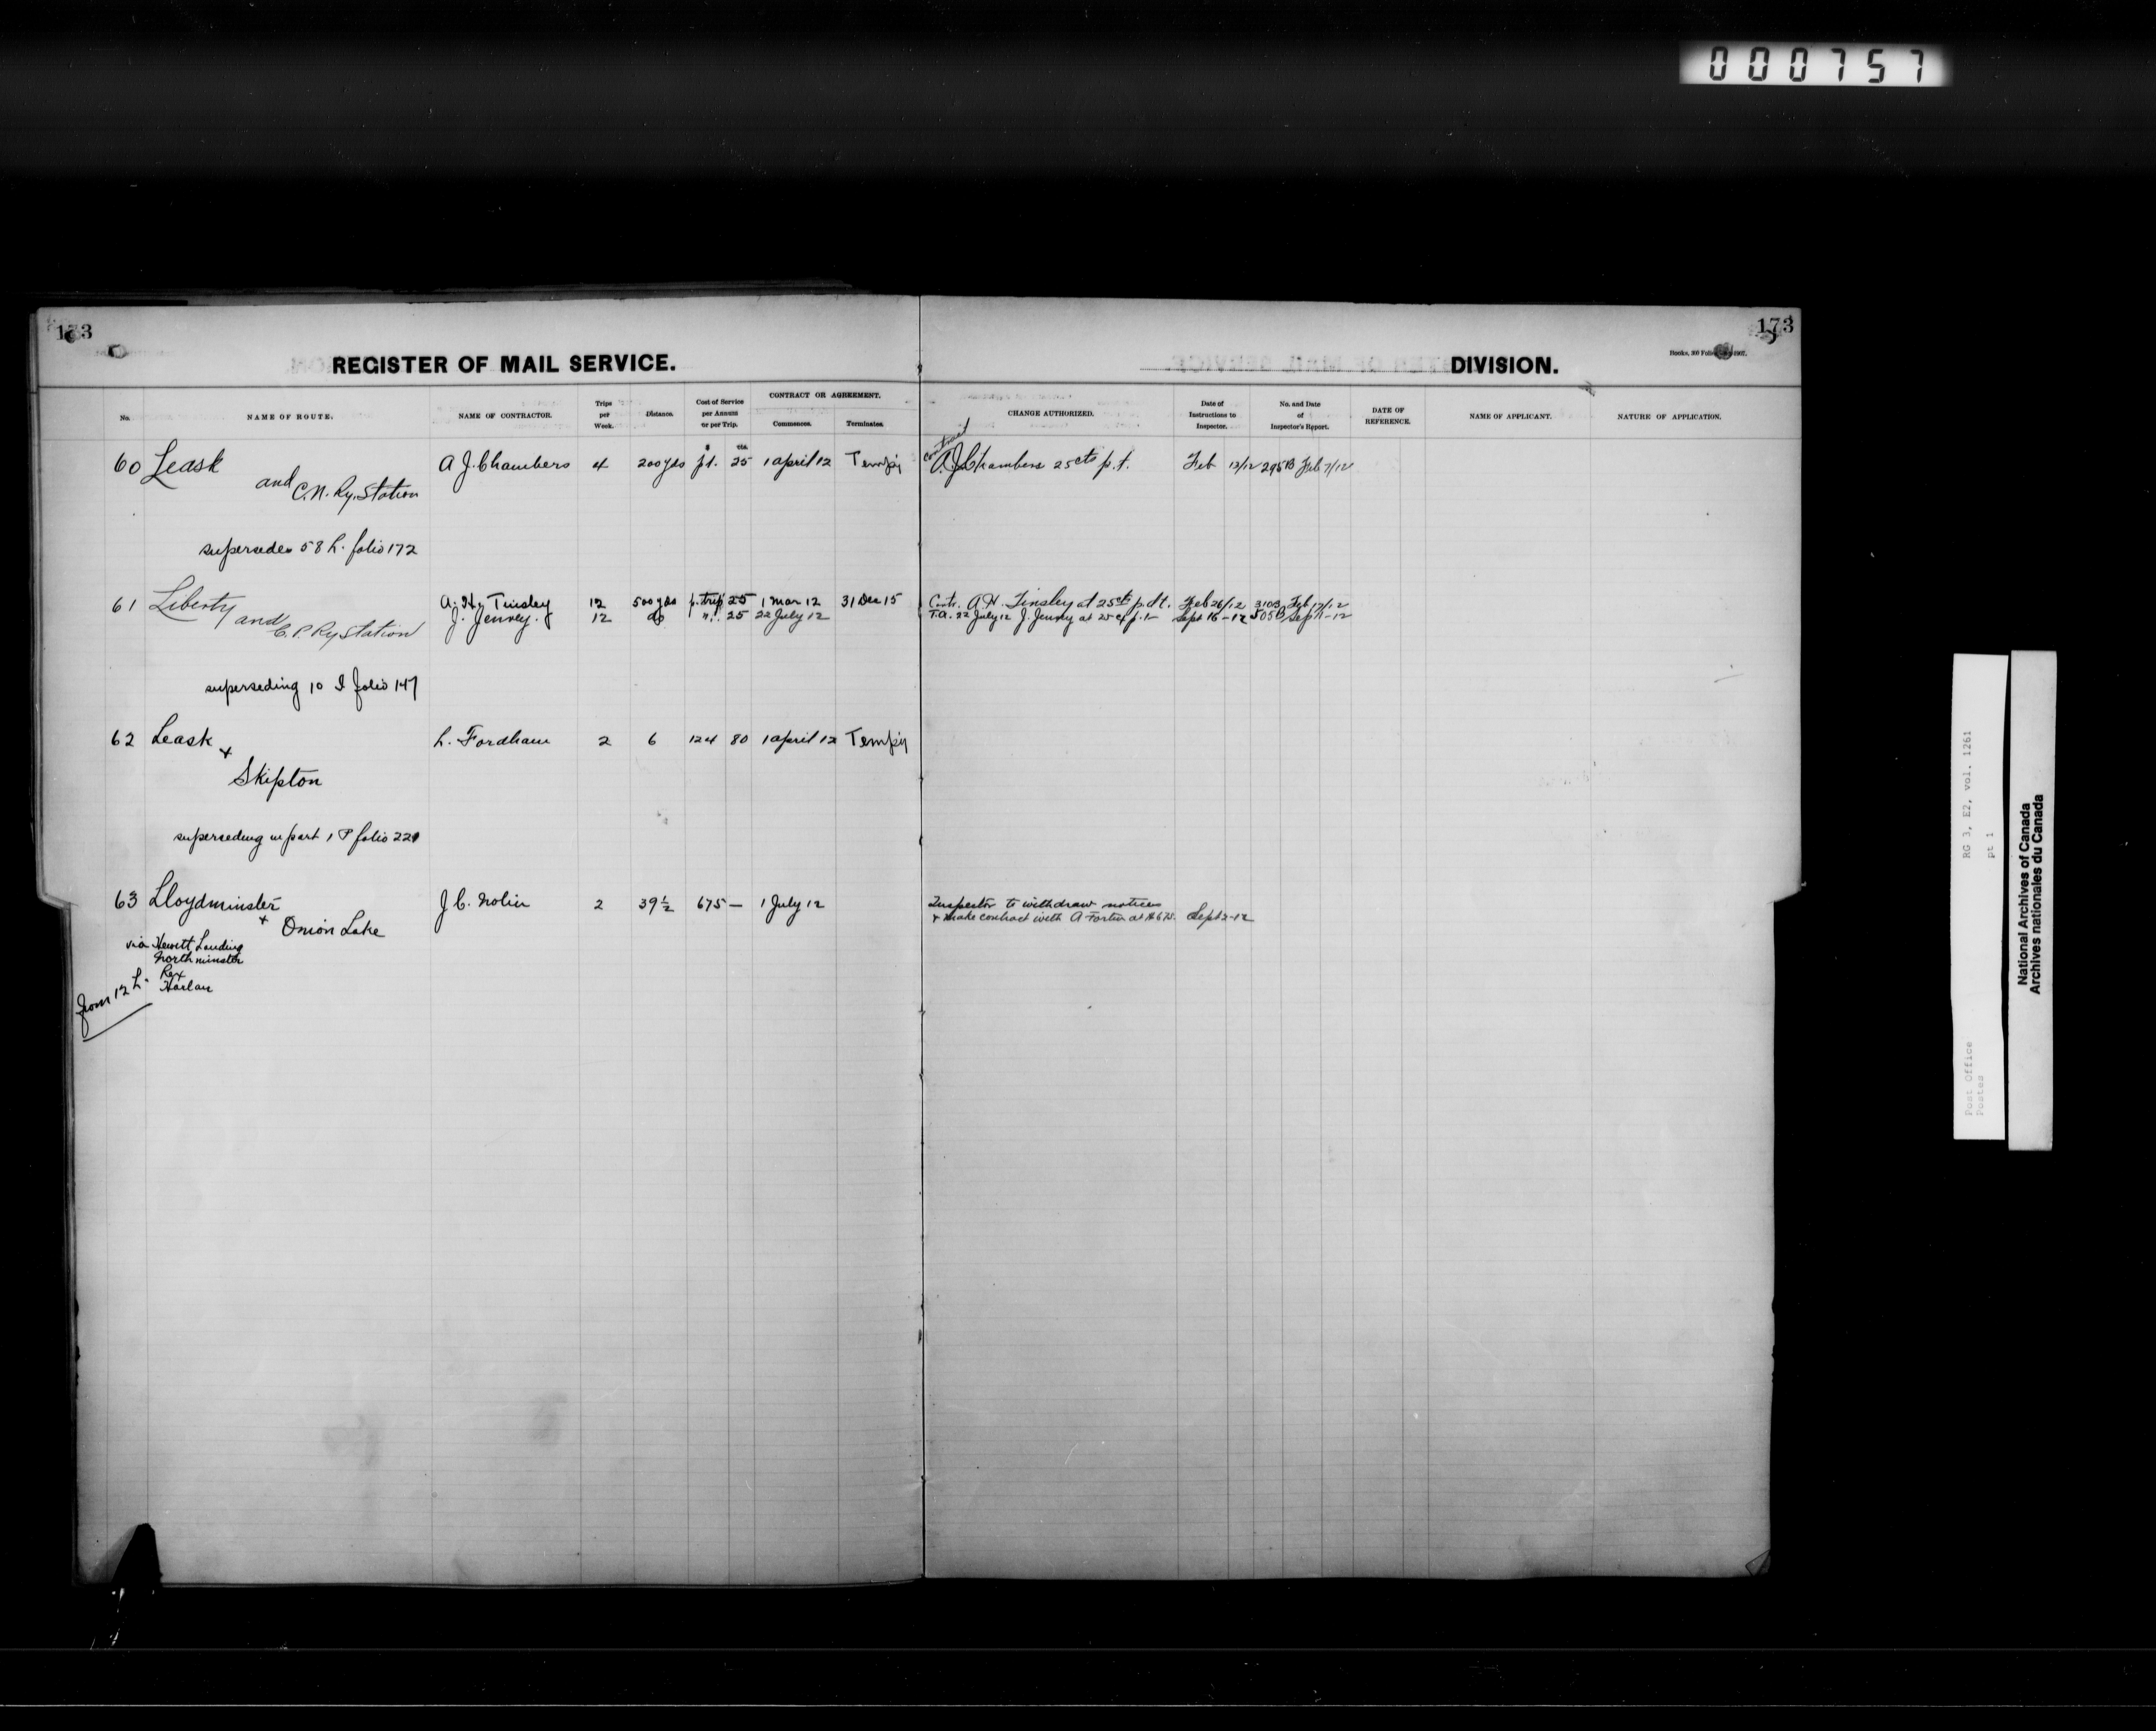 000757
173
173
Books, 300 Folios 1907.
REGISTER OF MAIL SERVICE.
DIVISION.
No. NAME OF ROUTE. NAME OF CONTRACTOR. Trips per Week. Distance. Cost of Service per Annum or per Trip. CONTRACT OR AGREEMENT. Commences. Terminates. CHANGE AUTHORIZED. Date of Instructions to Inspector. No. and Date of Inspector's Report. DATE OF REFERENCE. NAME OF APPLICANT. NATURE OF APPLICATION.
$ cts.
contract
60 Leask A J. Chambers 4 200 yds p.t. 25 1 april 12 Temp'y A. J. Chambers 25 cts p.t. Feb 12/12 295B Feb 7/12
and C.N. Ry. Station
supersedes 58 L. folio 172
61 Liberty A. Hy Tinsley 12 500 yds p. trip 25 1 Mar 12 31 Dec 15 Contr. A.H. Tinsley at 25 cts p.d t. Feb 26/12 310B Feb 17/12
and C.P. Ry Station J. Jenvey. 12 do " 25 22 July 12 T.A. 22 July 12 J. Jenvey at 25 c p.t- Sept 16-12 505B Sep 11-12
superseding 10 I folio 147
62 Leask L. Fordham 2 6 124 80 1 april 12 Temp'y
+
Skipton
superseding in part 1 P folio 221
63 Lloydminster J C. Nolin 2 39½ 675 — 1 July 12 Inspector to withdraw notices
+ Onion Lake + make contract with A Fortin at $675. Sept 2-12
via Hewitt Landing
Northminster
Rex
Harlan
from 12 L.
National Archives of Canada
Archives nationales du Canada
RG 3, E2, vol. 1261
pt 1
Post Office
Postes